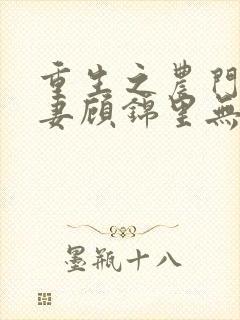 重生之農門
妻顾錦里無
墨瓶十八